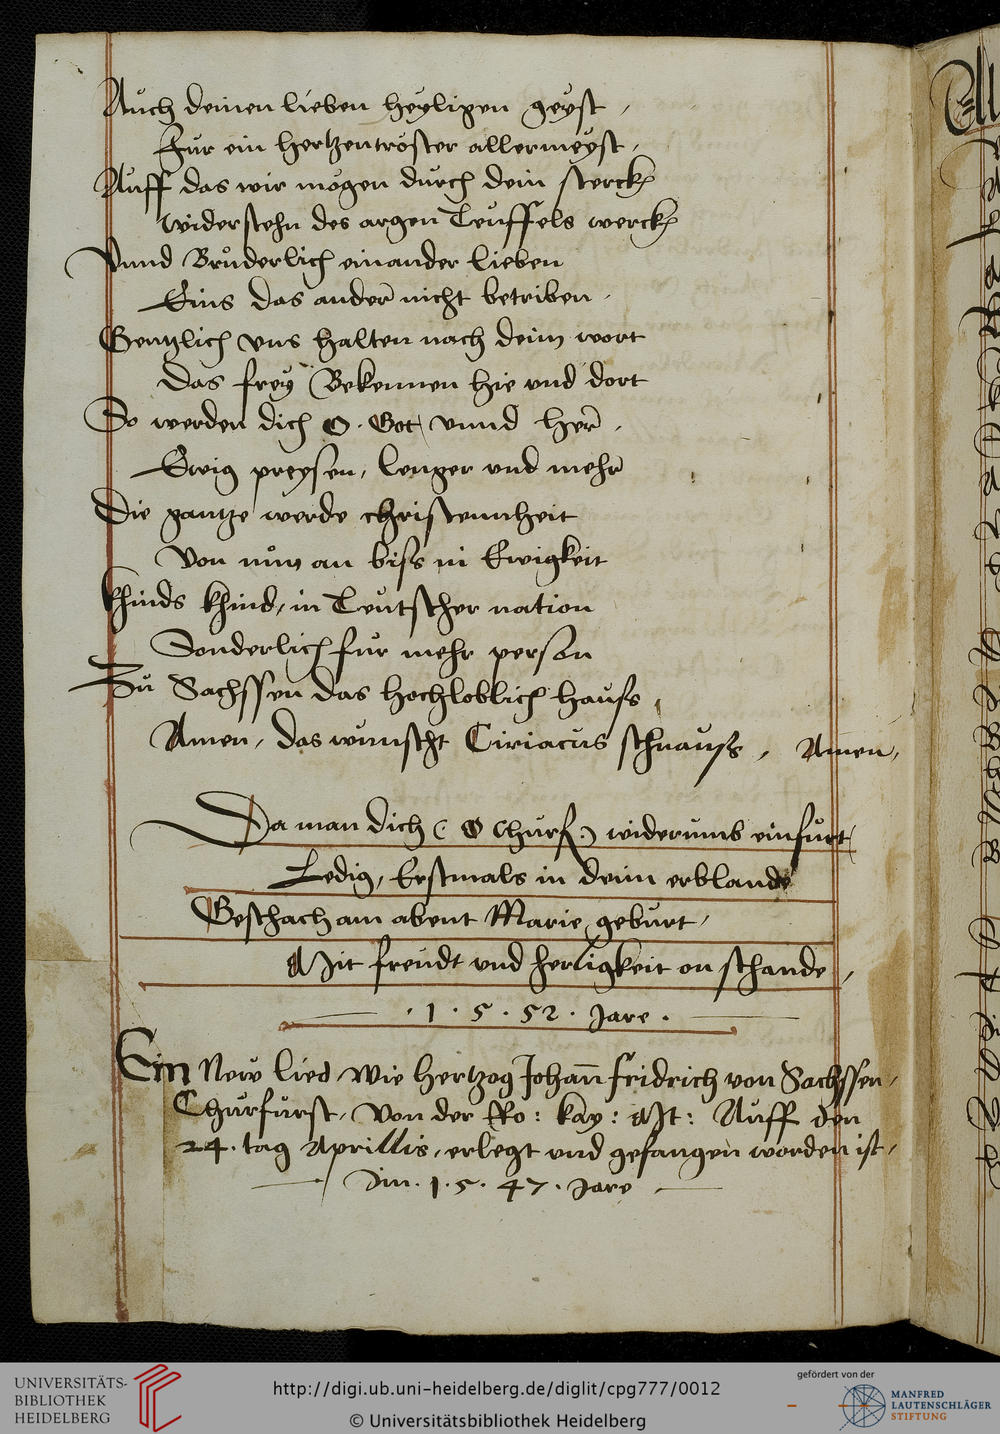 Auch deinen lieben heyligen geyst,
Fur ein hertzentröster allermeyst,
Auff das wir mögen durch dein sterck
widerstehn des argen Teuffels werck
Vnnd Brüderlich einander lieben
Eins das ander nicht betriben.
Gentzlich vns halten nach deim wort
Das frey Bekennen hie vnd dort
So werden dich O. Got vnnd herr,
Ewig preysen, lenger vnd mehr
Die gantze werde christennheit
Von nün an biss in Ewigkeit
khinds khind, in Teutscher nation
Sonderlich für mehr person
Zu Sachssen das hochloblich hauss,
Amen, das wunscht Ciriacus schnauss, Amen,
Da man dich (: O Churf :) widerumb einfurt,
Ledig, Erstmals in deim erblande
Geschach am abent Marie geburt,
Mit freudt vnd herligkeit on schande,
. 1 . 5 . 52 . Jare .
Ein New lied Wie hertzog Johann fridrich von Sachssen,
Churfurst, Von der Ro: kay: Mt: Auff den
24. tag Aprillis, erlegt vnd gefangen worden ist,
Im . 1 . 5 . 47 . Jare
UNIVERSITÄTS-
BIBLIOTHEK
HEIDELBERG
http://digi.ub.uni-heidelberg.de/diglit/cpg777/0012
© Universitätsbibliothek Heidelberg
gefördert von der
MANFRED
LAUTENSCHLÄGER
STIFTUNG